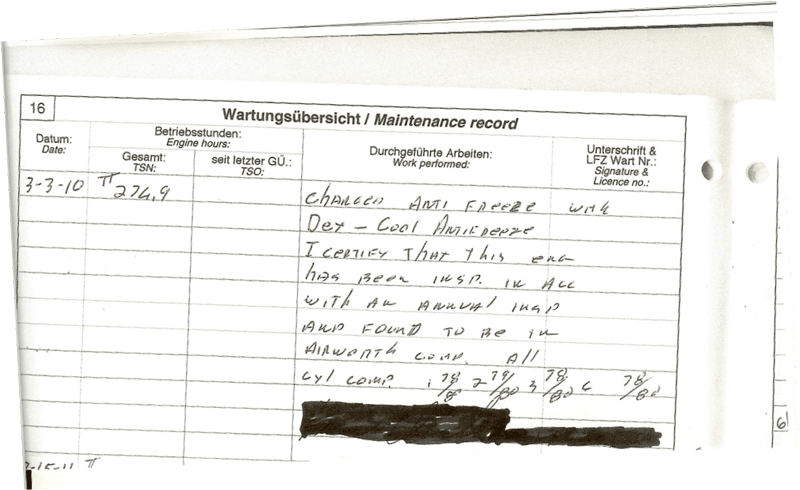 16
Wartungsübersicht / Maintenance record
Datum:
Date:
Betriebsstunden:
Engine hours:
Gesamt:
TSN:
seit letzter GÜ.:
TSO:
Durchgeführte Arbeiten:
Work performed:
Unterschrift &
LFZ Wart Nr.:
Signature &
Licence no.:
3-3-10 TT 274.9 CHANGED ANTI FREEZE WITH
DEX - COOL ANTIFREEZE
I CERTIFY THAT THIS ENG
HAS BEEN INSP. IN ACC
WITH AN ANNUAL INSP
AND FOUND TO BE IN
AIRWORTH COND. All
CYL COMP. 1 78/80 2 78/80 3 78/80 78/80
6